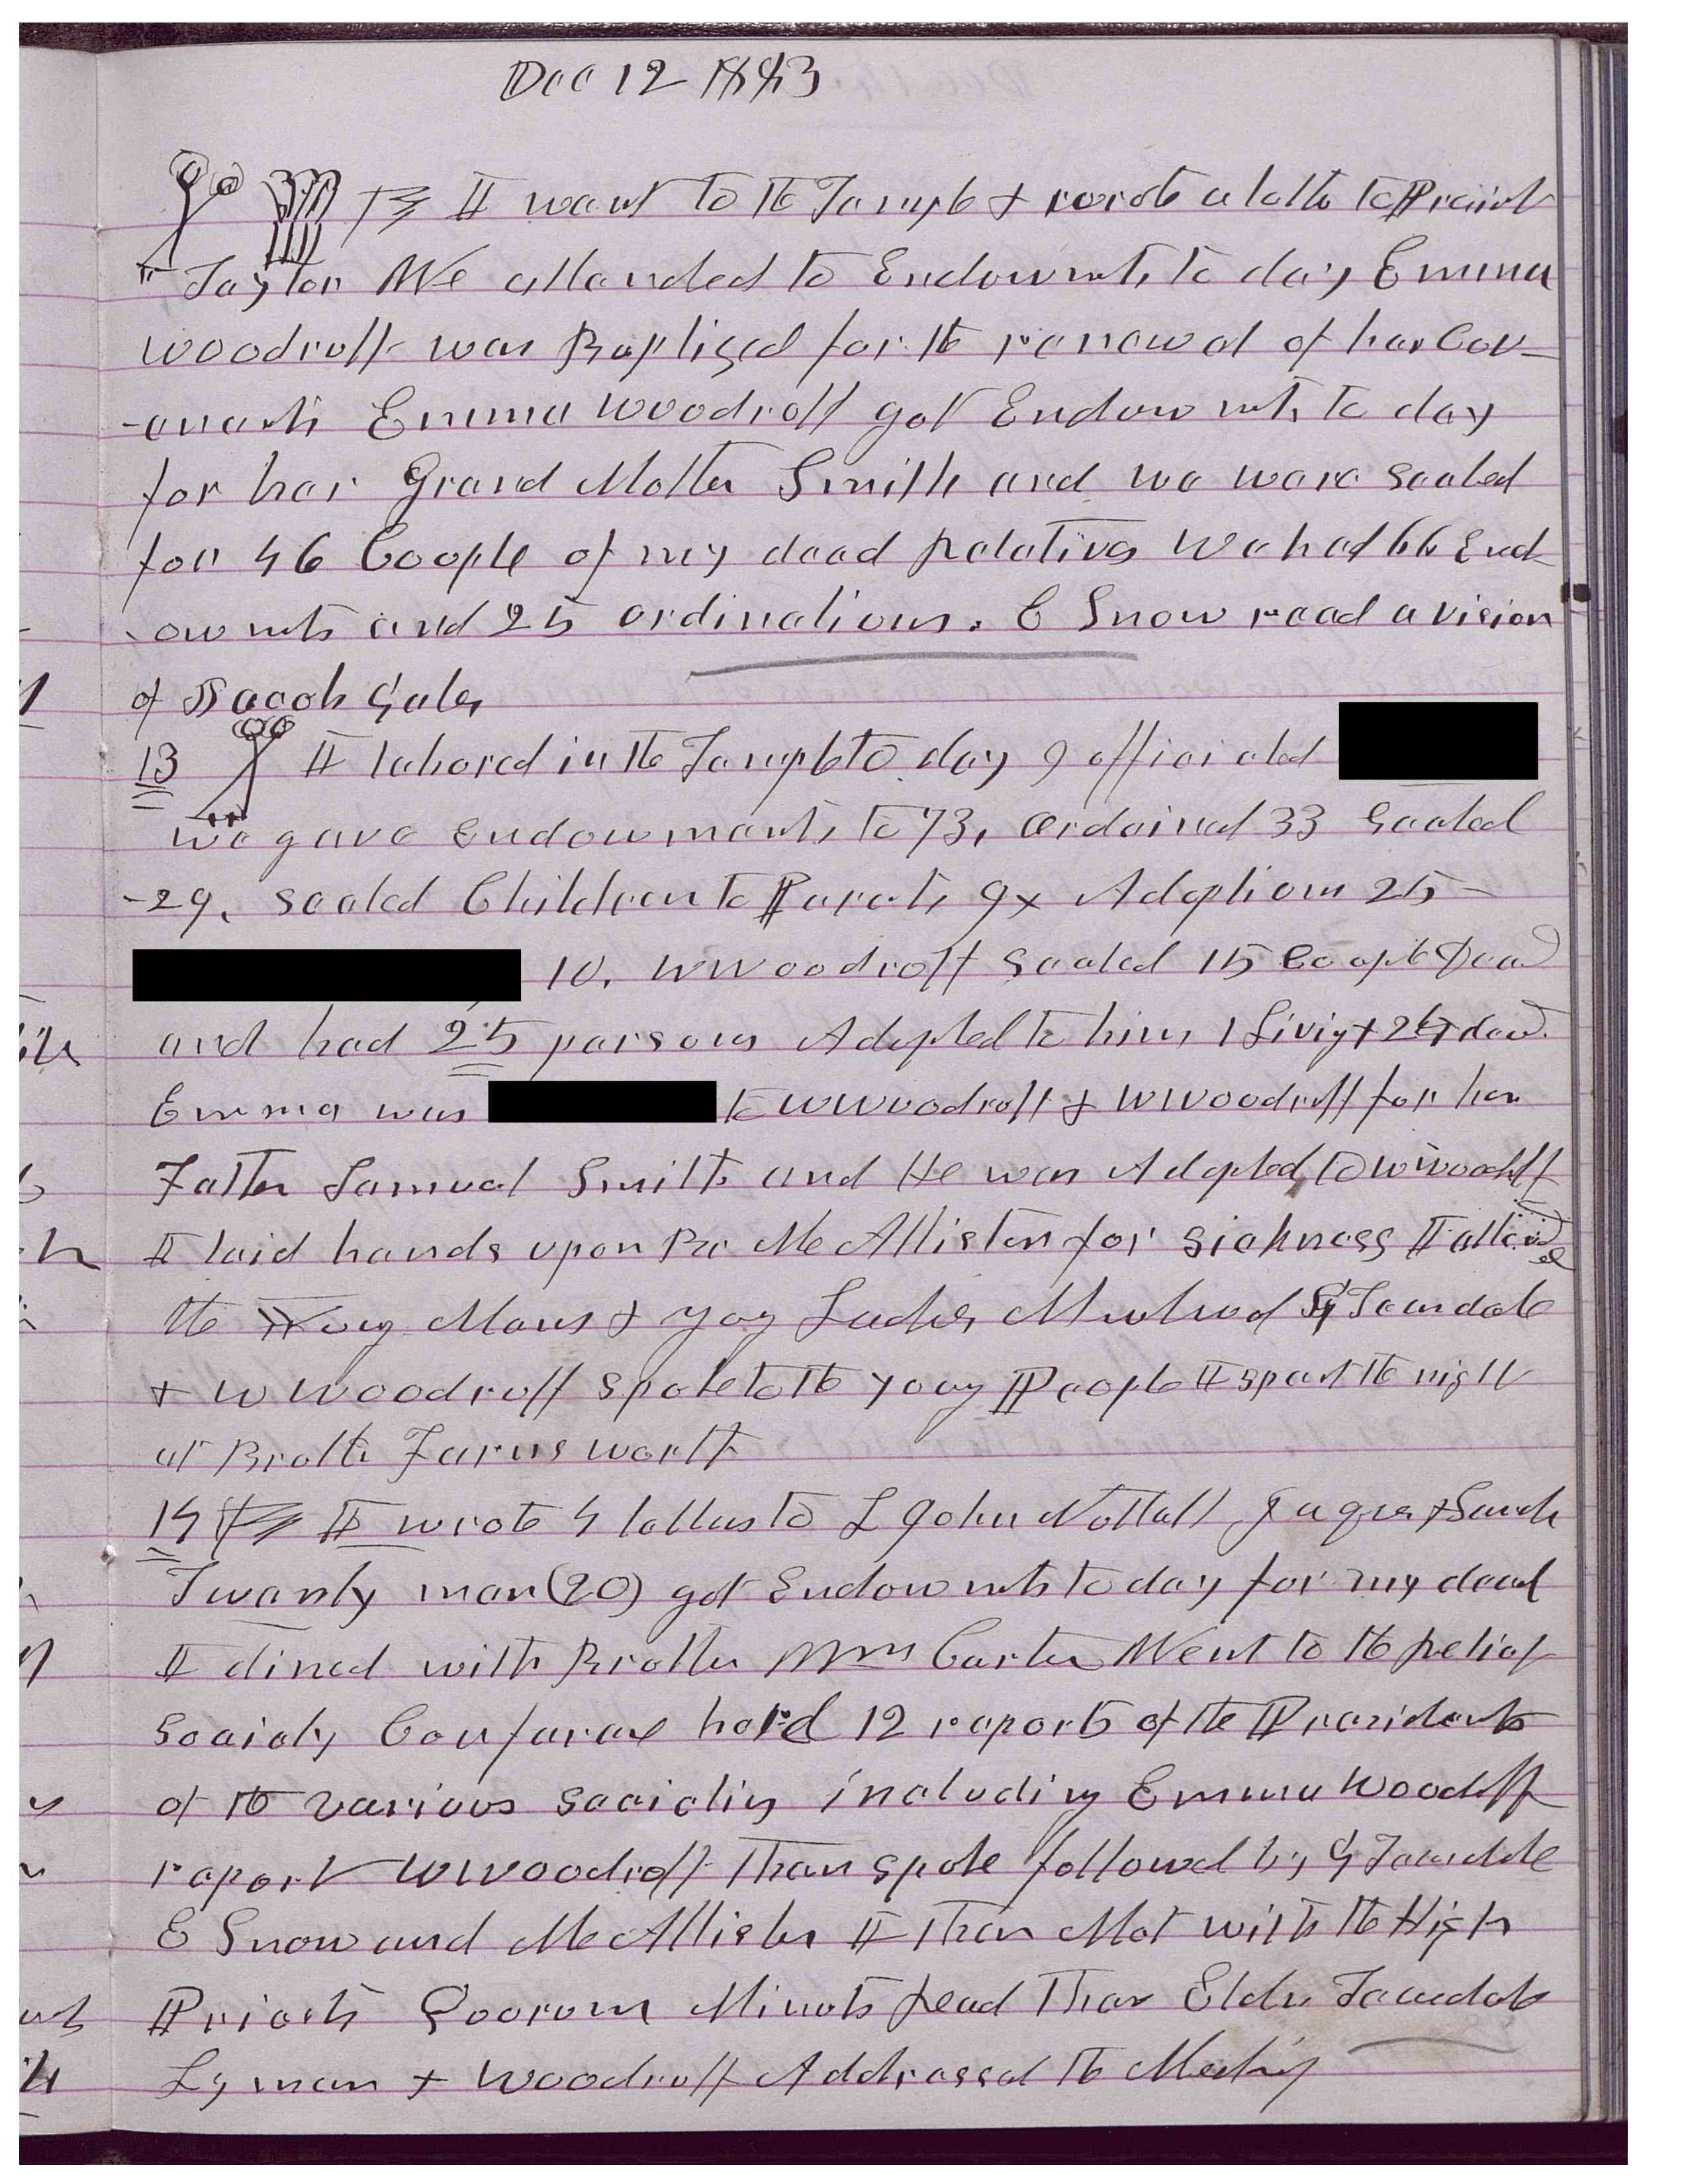 Dec 12 1883
I went to the Temple & wrote a letter to Presidt
Taylor We attended to Endowmts to day Emma
Woodruff was Baptized for the renewal of her Cov-
-enants Emma Woodruff got Endowmts to day
for her Grand Mother Smith and we were sealed
for 46 Coople of my dead relatives We had 66 End-
owmts and 25 ordinations. E Snow read a vision
of Jacob Gates
13 I labored in the Temple to day & officiated
we gave Endowments to 73, ordained 33 Sealed
-29, sealed Children to Parents 9 Adoptions 25-
10. W Woodruff Sealed 15 Coople Dead
and had 25 persons Adopted to him, 1 Livig & 24 dead.
Emma was to W Woodruff & W Woodruff for her
Father Samuel Smith and He was Adopted to W Woodruff
I laid hands upon Br McAllister for sickness I attended
the Yong Mens & Yog Ladies Mutual G Teasdale
& W Woodruff spoke to the yoog People I spent the night
at Brother Farnsworth
14 I wrote 4 letters to L John Nuttall Jaques & Sarah
Twenty men (20) got Endowmts to day for my dead
I dined with Brother Wm Carter Went to the Relief
Society Conferece herd 12 reports of the Presidents
of the various Societies including Emma Woodruff
report W Woodruff Then spoke followed by G Teasdale
E Snow and McAllister I then Met with the High
Priests Quorum Minuts Read Then Elder Teasdale
Lyman & Woodruff Addressed the Meetig